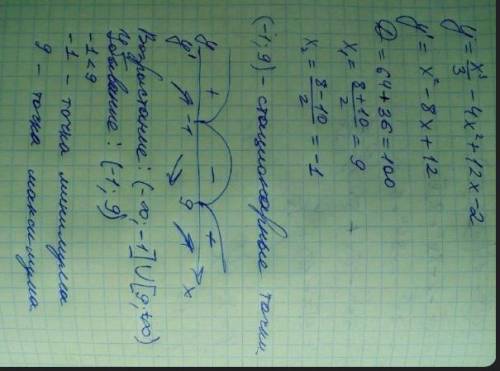 y = x³/3 - 4x² + 12x - 2
y' = x² - 8x + 12
D = 64 + 36 = 100
x₁ = (8+10)/2 = 9
x₂ = (8-10)/2 = -1
(-1; 9) - стационарные точки.
+ - +
y' -1 9 x
y ↗ ↘ ↗
Возрастание: (-∞; -1] ∪ [9; +∞)
убывание: (-1; 9)
-1 < 9
-1 - точка минимума
9 - точка максимума